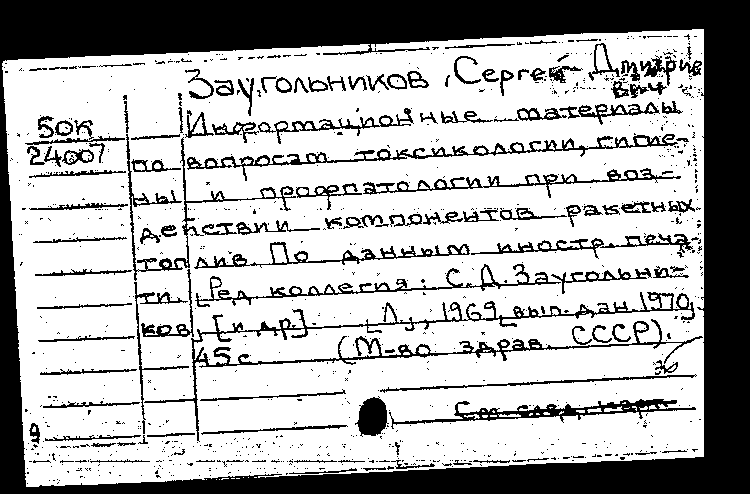 Заугольников, Сергей Дмитрие
вич
50к
24007
Информационные материалы
по вопросам токсикологии, гигие-
ны и профпатологии при воз-
действии компонентов ракетных
топлив. По данным иностр. печа-
ти. [Ред коллегия: С. Д. Заугольни-
ков, [и др.]. [Л.], 1969 [вып. дан. 1970].
45 с. (М-во здрав. СССР).
См. след. карт.
9